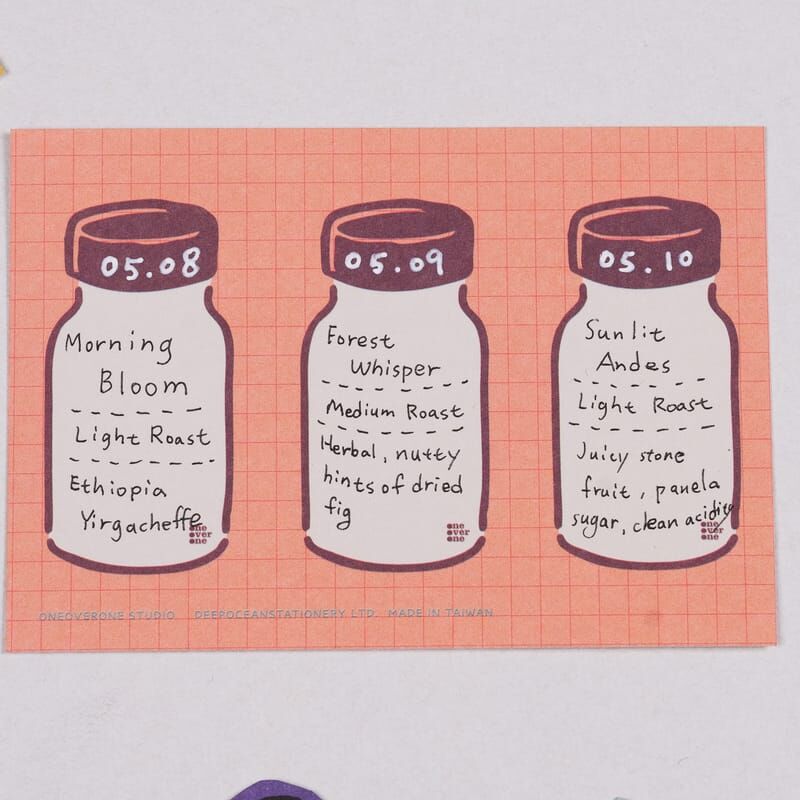 05.08
Morning
Bloom
Light Roast
Ethiopia
Yirgacheffe
one
over
one
05.09
Forest
Whisper
Medium Roast
Herbal, nutty
hints of dried
fig
one
over
one
05.10
Sunlit
Andes
Light Roast
Juicy stone
fruit, panela
sugar, clean acidity
one
over
one
ONEOVERONE STUDIO DEEPOCEANSTATIONERY LTD. MADE IN TAIWAN